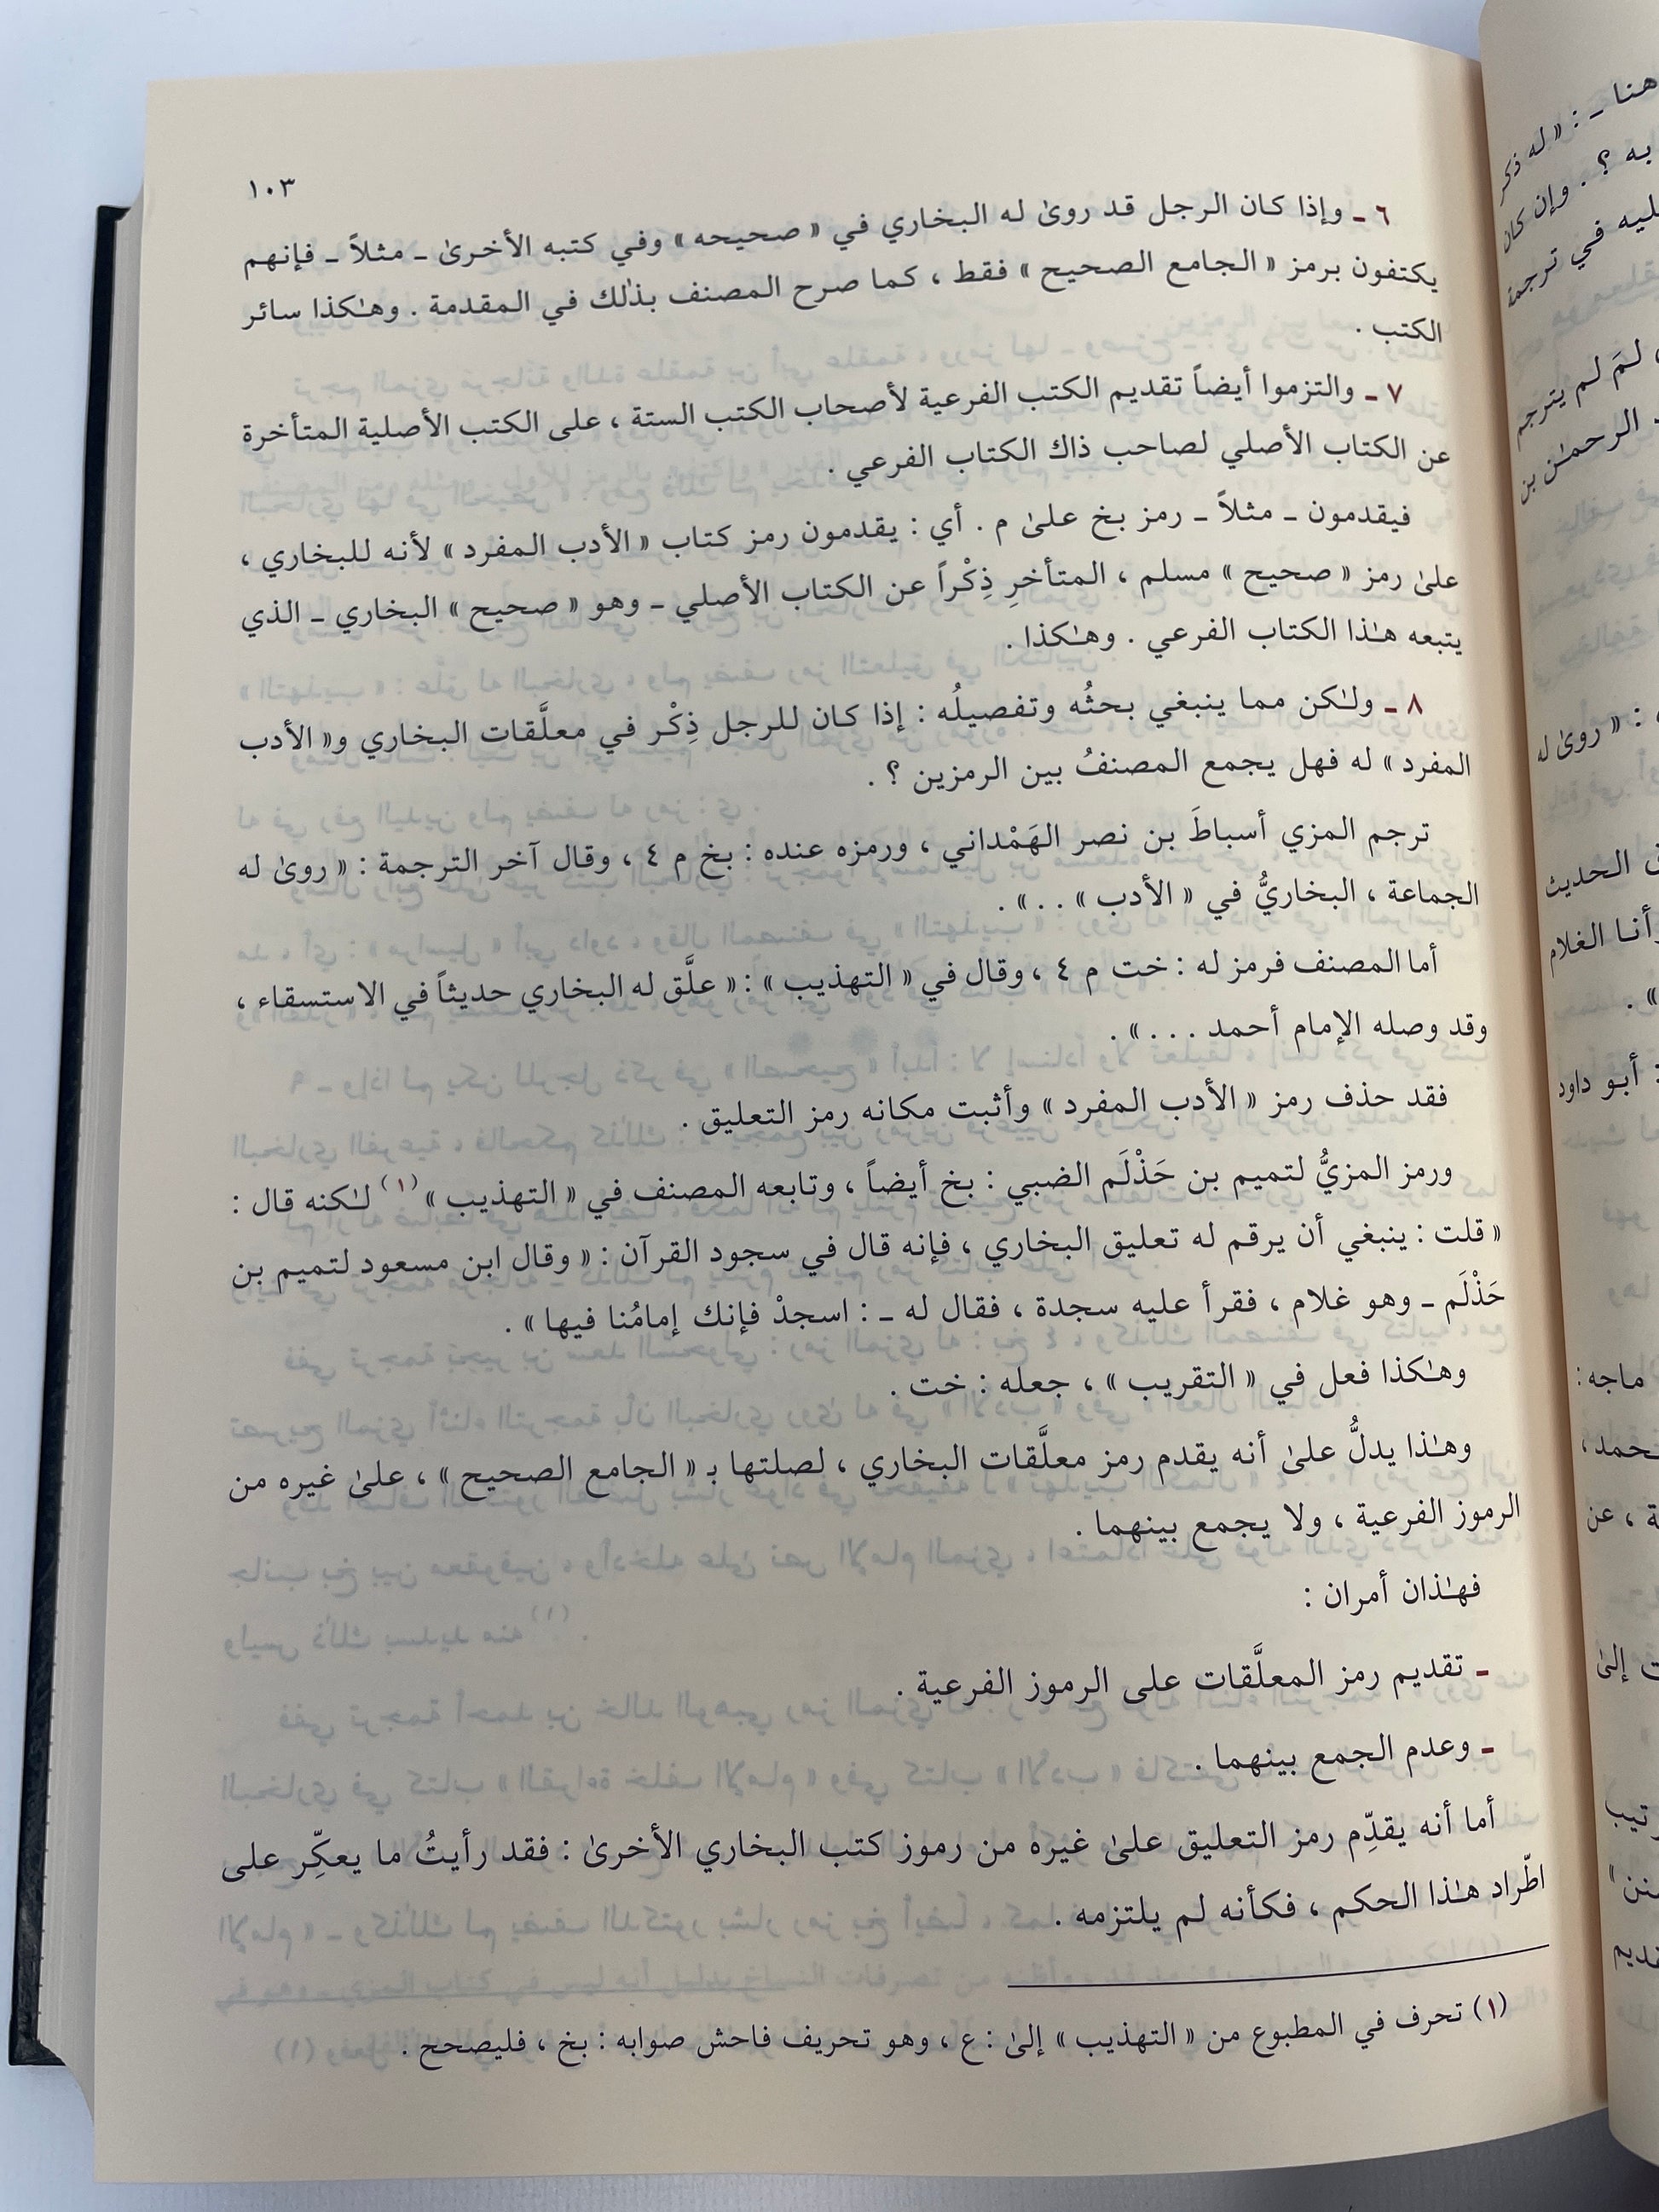 ١٠٣
٦ ـ وإذا كان الرجل قد روىٰ له البخاري في « صحيحه » وفي كتبه الأخرىٰ ـ مثلاً ـ فإنهم
يكتفون برمز « الجامع الصحيح » فقط ، كما صرح المصنف بذٰلك في المقدمة . وهـٰكذا سائر
الكتب .
٧ ـ والتزموا أيضاً تقديم الكتب الفرعية لأصحاب الكتب الستة ، على الكتب الأصلية المتأخرة
عن الكتاب الأصلي لصاحب ذاك الكتاب الفرعي .
فيقدمون ـ مثلاً ـ رمز بخ علىٰ م . أي : يقدمون رمز كتاب « الأدب المفرد » لأنه للبخاري ،
علىٰ رمز « صحيح » مسلم ، المتأخرِ ذِكْراً عن الكتاب الأصلي ـ وهو « صحيح » البخاري ـ الذي
يتبعه هـٰذا الكتاب الفرعي . وهـٰكذا .
٨ ـ ولـٰكن مما ينبغي بحثُه وتفصيلُه : إذا كان للرجل ذِكْر في معلَّقات البخاري و« الأدب
المفرد » له فهل يجمع المصنفُ بين الرمزين ؟ .
ترجم المزي أسباطَ بن نصر الهَمْداني ، ورمزه عنده : بخ م ٤ ، وقال آخر الترجمة : « روىٰ له
الجماعة ، البخاريُّ في « الأدب » . . » .
أما المصنف فرمز له : خت م ٤ ، وقال في « التهذيب » : « علَّق له البخاري حديثاً في الاستسقاء ،
وقد وصله الإمام أحمد . . . » .
فقد حذف رمز « الأدب المفرد » وأثبت مكانه رمز التعليق .
ورمز المزيُّ لتميم بن حَذْلَم الضبي : بخ أيضاً ، وتابعه المصنف في « التهذيب »(١) لـٰكنه قال :
« قلت : ينبغي أن يرقم له تعليق البخاري ، فإنه قال في سجود القرآن : « وقال ابن مسعود لتميم بن
حَذْلَم ـ وهو غلام ، فقرأ عليه سجدة ، فقال له ـ : اسجدْ فإنك إمامُنا فيها » .
وهـٰكذا فعل في « التقريب » ، جعله : خت .
وهـٰذا يدلُّ علىٰ أنه يقدم رمز معلَّقات البخاري ، لصلتها بـ « الجامع الصحيح » ، علىٰ غيره من
الرموز الفرعية ، ولا يجمع بينهما .
فهـٰذان أمران :
ـ تقديم رمز المعلَّقات على الرموز الفرعية .
ـ وعدم الجمع بينهما .
أما أنه يقدِّم رمز التعليق علىٰ غيره من رموز كتب البخاري الأخرىٰ : فقد رأيتُ ما يعكِّر على
اطّراد هـٰذا الحكم ، فكأنه لم يلتزمه .
(١) تحرف في المطبوع من « التهذيب » إلىٰ : ع ، وهو تحريف فاحش صوابه : بخ ، فليصحح .
هنا ـ : « له ذكر
به ؟ . وإن كان
ليه في ترجمة
، لمَ لم يترجم
الرحمـٰن بن
: « روىٰ له
الحديث
أنا الغلام
» .
: أبو داود
ماجه :
حمد ،
ة ، عن
إلىٰ